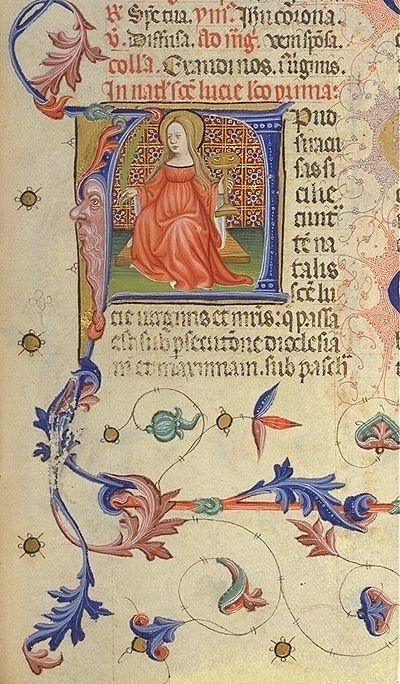 R Spetua. viiii. Isti corona.
V Diffusa. ad mg. veni sposa.
colla. Exaudi nos. i uginis.
In natl' sce lucie leo prima:
Apud
siracu
sas si
cilie
ciuit
te na
talis
sce lu
cie uirginis et mris: q passa
est sub psecutione dioclesia
ni et maximiani. sub pasch